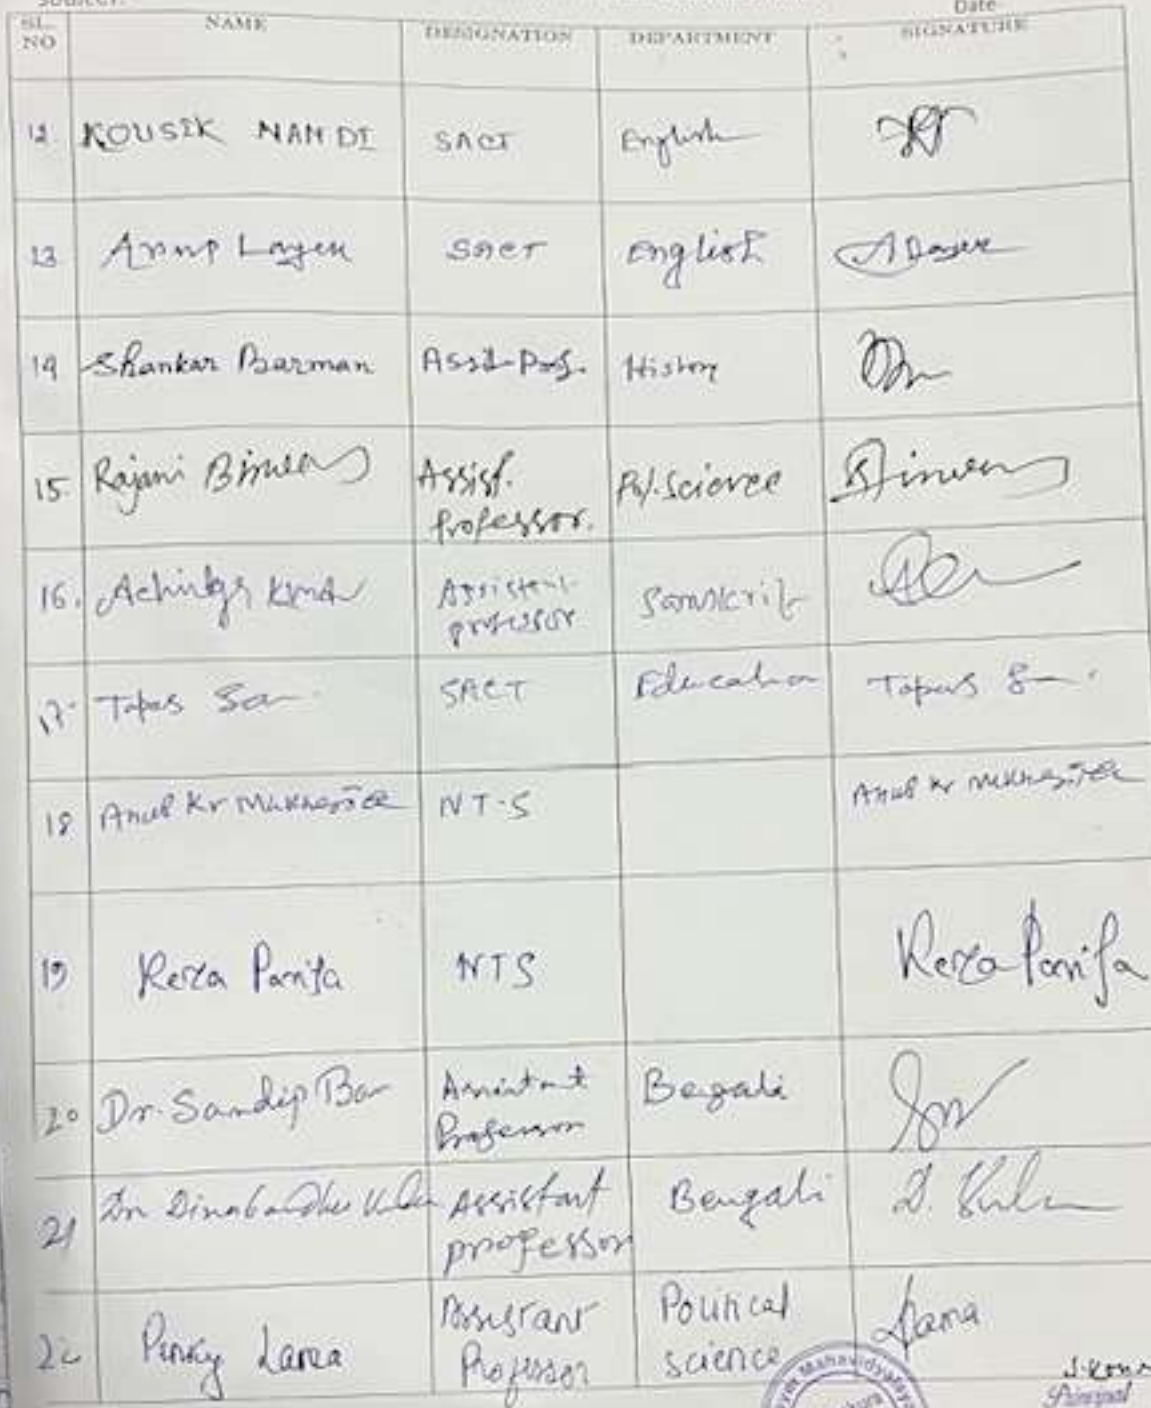 Date
SL. NO NAME DESIGNATION DEPARTMENT SIGNATURE
12 KOUSIK NANDI SACT English
13 Anup Layek SACT English
14 Shankar Barman Asst. Prof. History
15. Rajani Biswas Assist. Professor. Pol. Science
16. Assistant professor Sanskrit
17. Tapas SACT Education Tapas
18 Anup Kr Mukherjee NT-S Anup Kr Mukherjee
19 Panja NTS Panja
20 Dr. Sandip Assistant Professor Bengali
21 Dr Dinabandhu Assistant professor Bengali D.
22 Pinky Lama Assistant Professor Political science Lama
Mahavidyalaya
Principal